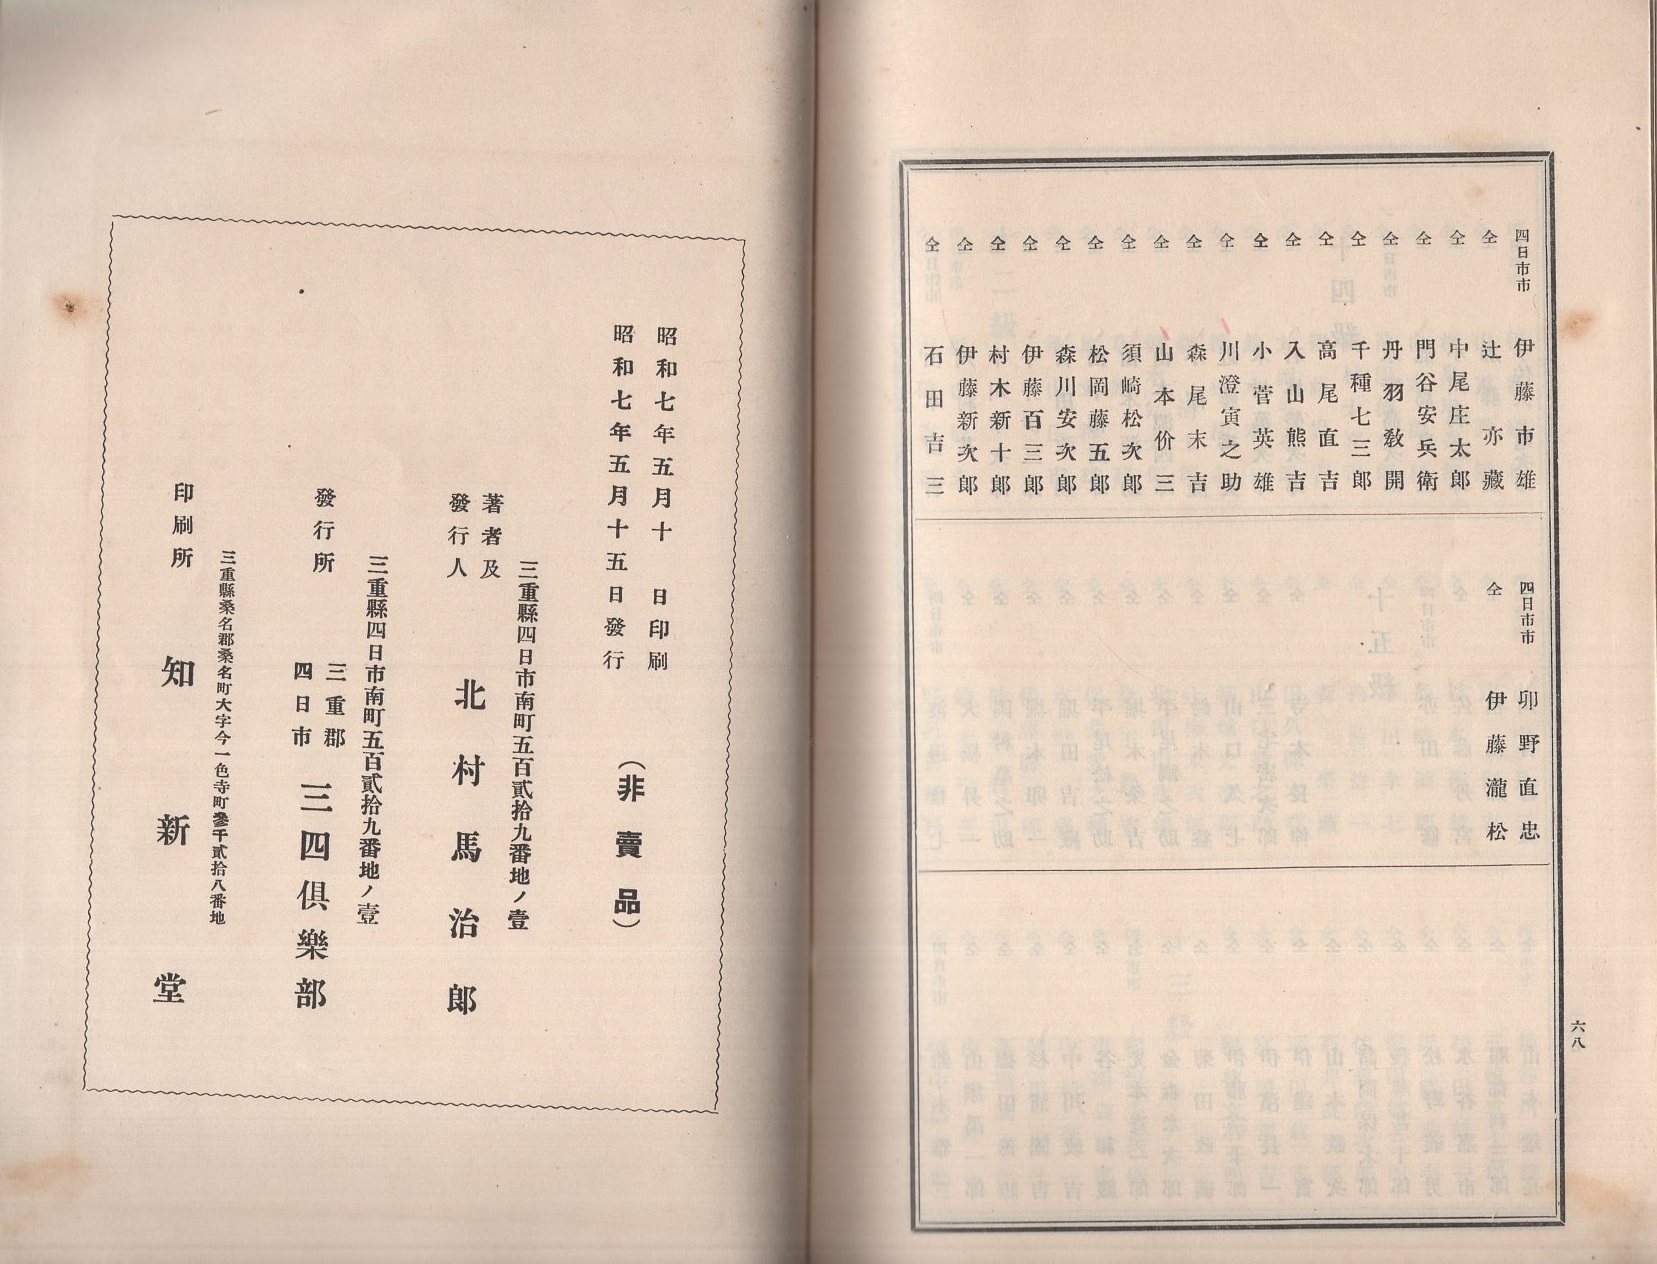 四日市市 伊藤市雄
仝 辻亦藏
仝 中尾庄太郎
仝 門谷安兵衛
仝 丹羽敎開
仝 千種七三郎
仝 高尾直吉
仝 入山熊吉
仝 小菅英雄
仝 川澄寅之助
仝 森尾末吉
仝 山本价三
仝 須崎松次郎
仝 松岡藤五郎
仝 森川安次郎
仝 伊藤百三郎
仝 村木新十郎
仝 伊藤新次郎
仝 石田吉三
四日市市 卯野直忠
仝 伊藤瀧松
六八
昭和七年五月十 日印刷
昭和七年五月十五日發行
（非賣品）
三重縣四日市南町五百貳拾九番地ノ壹
著者及
發行人 北村馬治郎
三重縣四日市南町五百貳拾九番地ノ壹
發行所 三重郡
四日市 三四倶樂部
三重縣桑名郡桑名町大字今一色寺町參千貳拾八番地
印刷所 知新堂